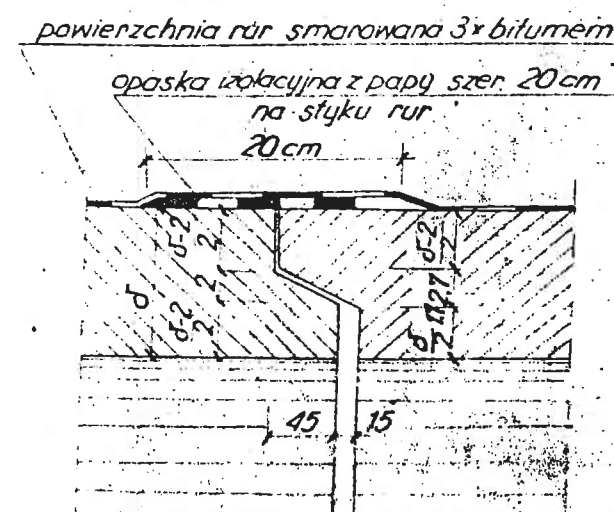 powierzchnia rur smarowana 3x bitumem
opaska izolacyjna z papy szer. 20 cm
na styku rur
20 cm
δ-2
2
2
δ-2
2
δ
δ-2
2
2,7
δ
2
45
15